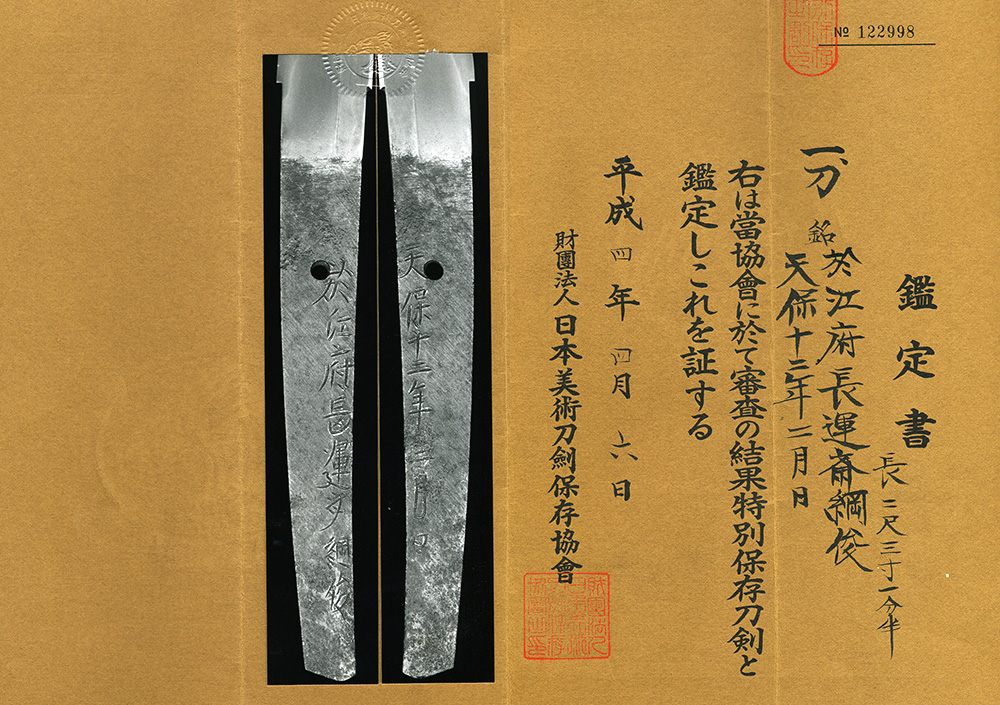 № 122998
鑑定書
長二尺三寸一分半
一刀 銘 於江府長運斎綱俊
天保十三年二月日
右は當協會に於て審査の結果特別保存刀剣と
鑑定しこれを証する
平成四年四月六日
財團法人日本美術刀劍保存協會
天保十三年二月日
於江府長運斎綱俊